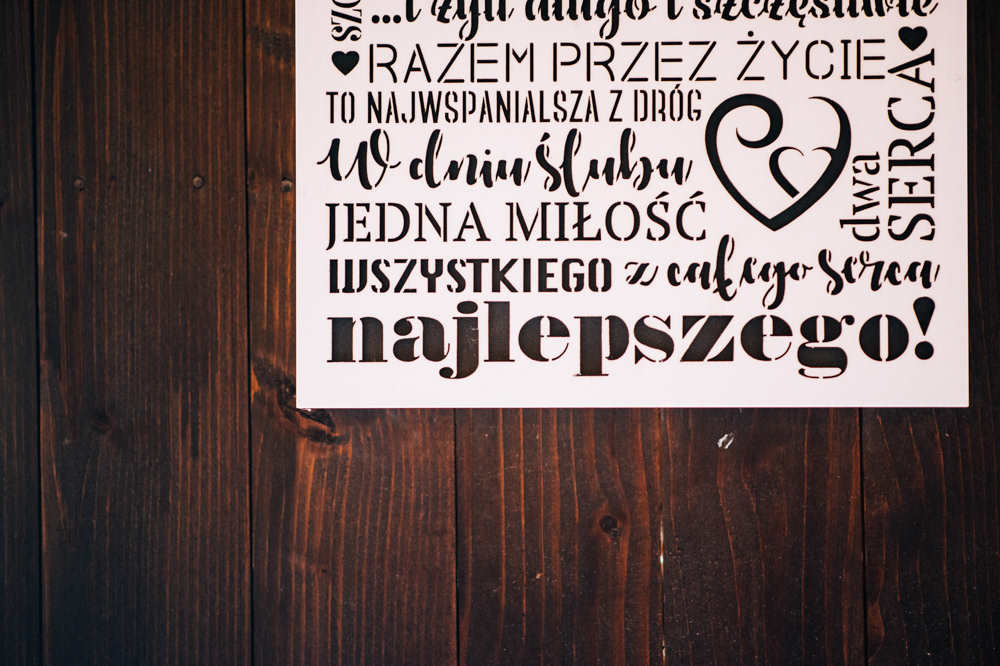 ...i żyli długo i szczęśliwie
RAZEM PRZEZ ŻYCIE
TO NAJWSPANIALSZA Z DRÓG
W dniu ślubu
JEDNA MIŁOŚĆ
dwa
SERCA
WSZYSTKIEGO z całego serca
najlepszego!